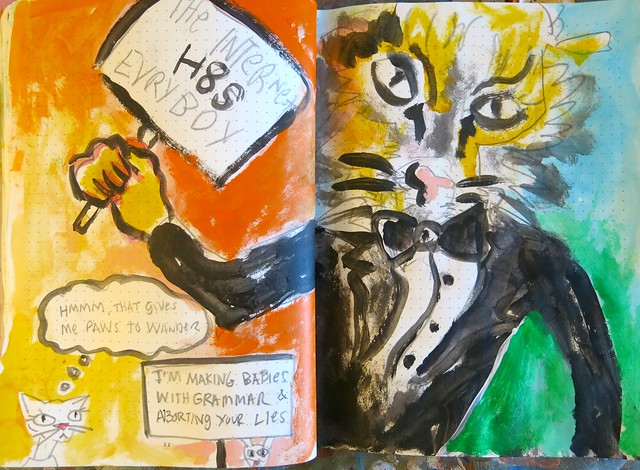 THE INTERNET
H8S
EVRYBOY
HMMM, THAT GIVES
ME PAWS TO WANDER
I'M MAKING BABIES
WITH GRAMMAR &
ABORTING YOUR LIES